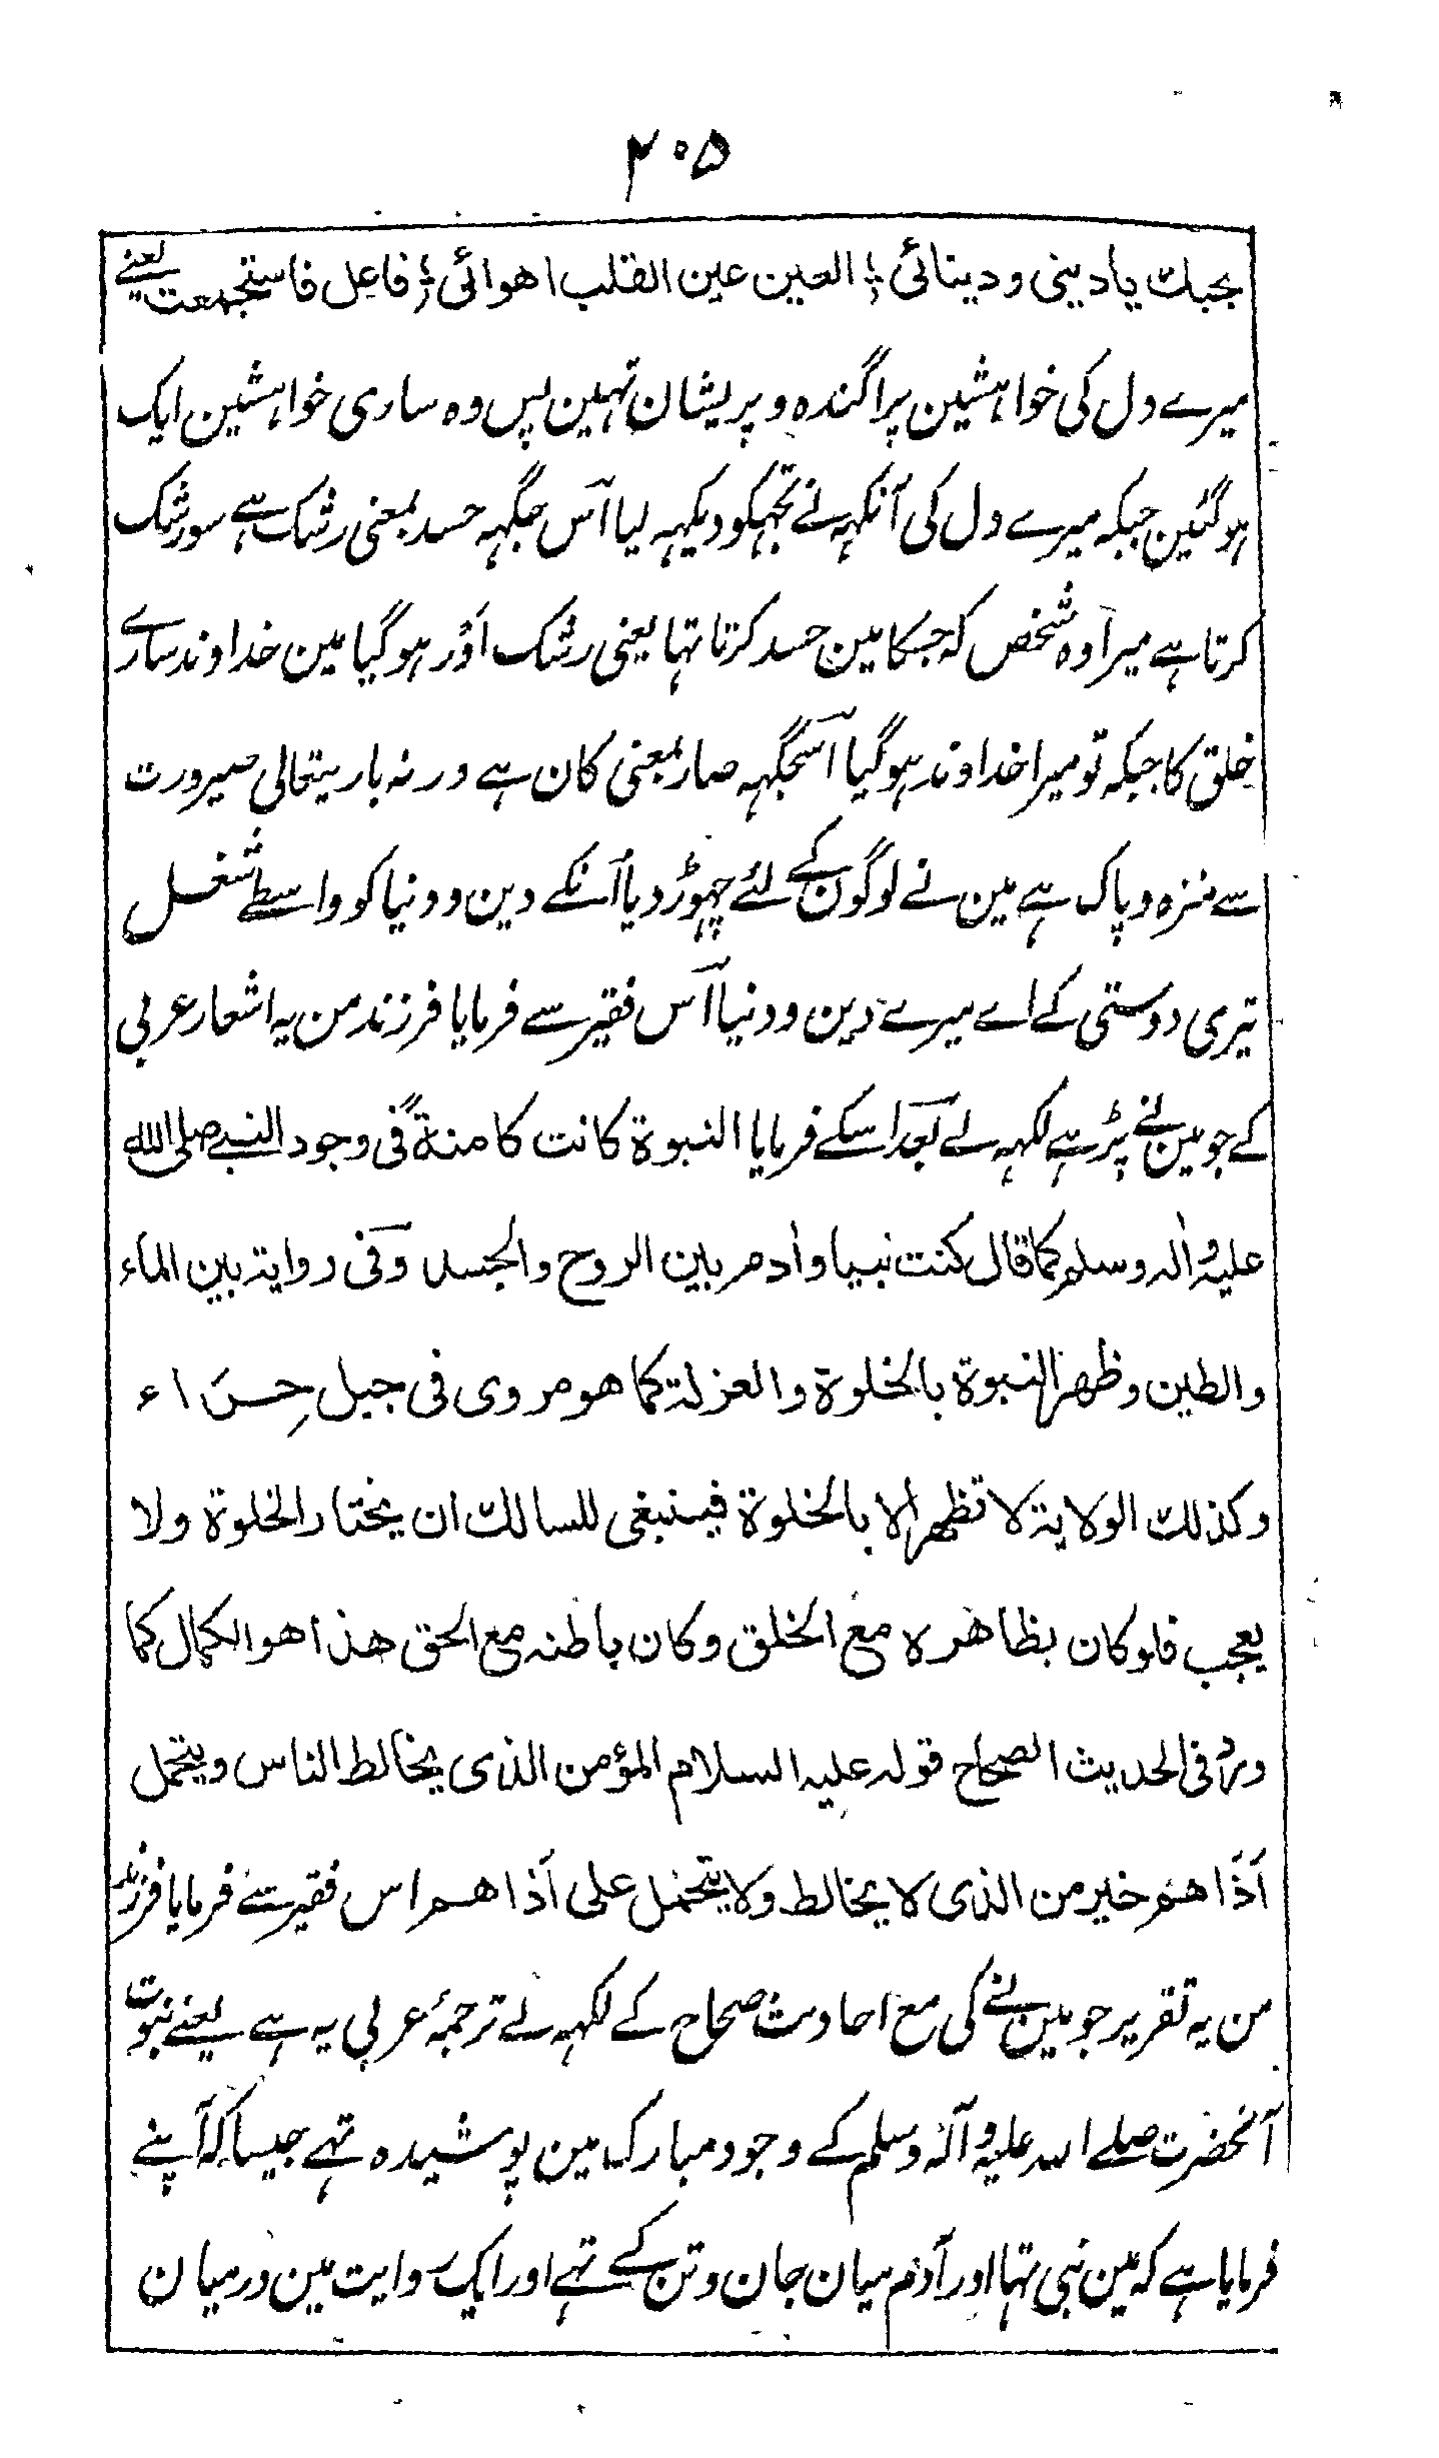 ۲۰۵
بحبك يا ديني و دينائي ؛ العين عين القلب اهوائى ؛ فاعل فاستجمعت یعنے
میرے دل کی خواہشین پراگندہ و پریشان تہین پس وہ ساری خواہشین ایک
ہوگئین جبکہ میرے دل کی آنکہہ نے تجہکو دیکہہ لیا اس جگہہ حسد بمعنی رشک ہے سو رشک
کرتا ہے میرا وہ شخص کہ جسکا مین حسد کرتا تہا یعنی رشک اور ہوگیا مین خداوند سارے
خلق کا جبکہ تو میرا خداوند ہوگیا اسجگہہ صار بمعنی کان ہے ورنہ باریتعالی صیرورت
سے منزہ و پاک ہے مین نے لوگون کے لئے چہوڑ دیا اُنکے دین و دنیا کو واسطے شغل
تیری دوستی کے اے میرے دین و دنیا اس فقیر سے فرمایا فرزند من یہ اشعار عربی
کے جو مین نے پڑہے لکہہ لے بعد اسکے فرمایا النبوة كانت كامنةً فى وجود النبے صلى الله
عليه واٰله وسلم كما قال كنت نبيا واٰدم بين الروح والجسد وفى رواية بين الماء
والطين وظهر النبوة بالخلوة والعزلة كما هو مروى فى جبل حِرَاء
وكذلك الولاية لا تظهر الا بالخلوة فينبغى للسالك ان يختار الخلوة ولا
يعجب فلو كان بظاهره مع الخلق وكان باطنه مع الحق هذا هو الكمال كما
ورد فى الحديث الصحاح قوله عليه السلام المؤمن الذى يخالط الناس ويتحمل
اَذَاهم خير من الذى لا يخالط ولا يتحمل على اَذَاهم اس فقیر سے فرمایا فرزند
من یہ تقریر جو مین نے کی مع احادیث صحاح کے لکہہ لے ترجمۂ عربی یہ ہے یعنے نبوت
آنحضرت صلے اللہ علیہ وآلہ وسلم کے وجود مبارک مین پوشیدہ تہے جیسا کہ آپنے
فرمایا ہے کہ مین نبی تہا اور آدم میان جان و تن کے تہے اور ایک روایت مین درمیان